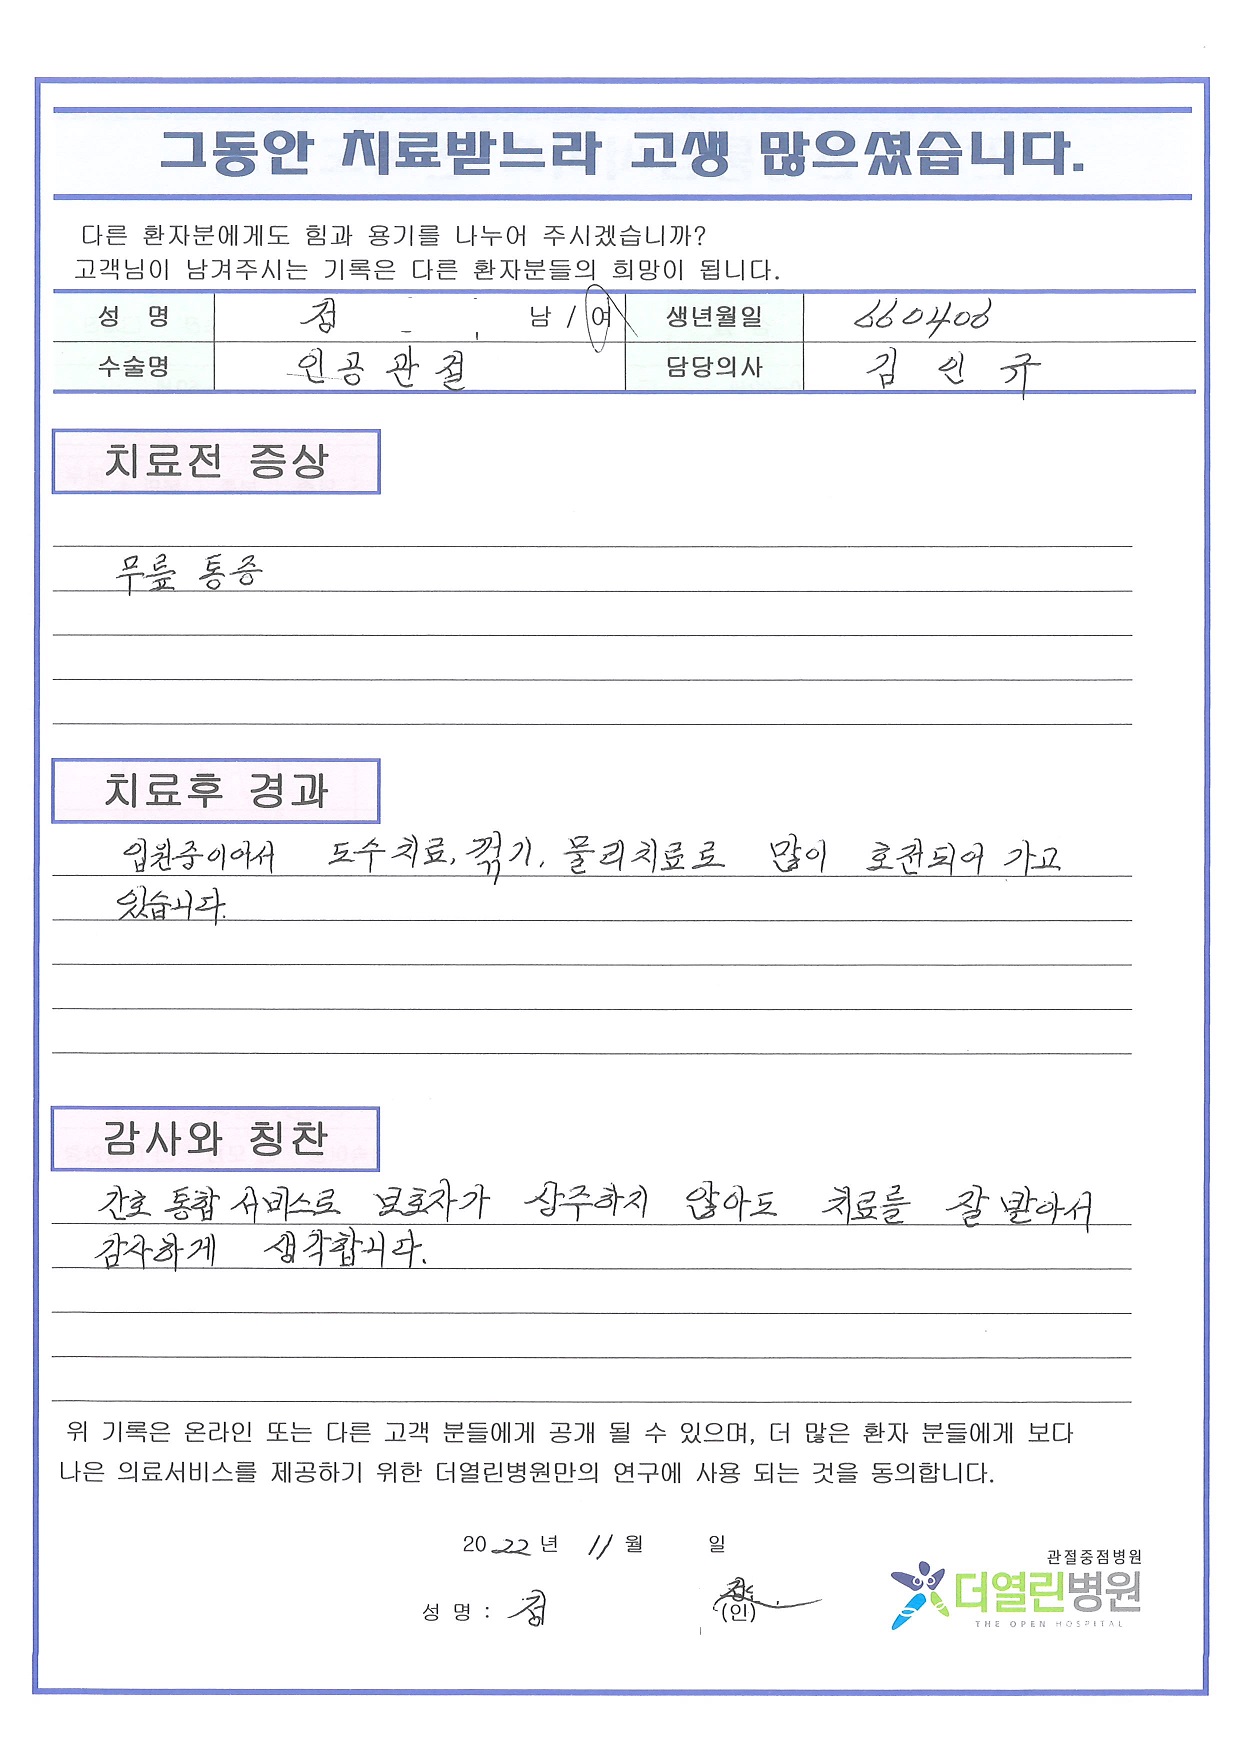 그동안 치료받느라 고생 많으셨습니다.
다른 환자분에게도 힘과 용기를 나누어 주시겠습니까?
고객님이 남겨주시는 기록은 다른 환자분들의 희망이 됩니다.
성 명 정 남 / 여 생년월일 660406
수술명 인공관절 담당의사 김 인 규
치료전 증상
무릎 통증
치료후 경과
입원중이어서 도수치료, 꺾기, 물리치료로 많이 호전되어 가고
있습니다.
감사와 칭찬
간호 통합 서비스로 보호자가 상주하지 않아도 치료를 잘 받아서
감사하게 생각합니다.
위 기록은 온라인 또는 다른 고객 분들에게 공개 될 수 있으며, 더 많은 환자 분들에게 보다
나은 의료서비스를 제공하기 위한 더열린병원만의 연구에 사용 되는 것을 동의합니다.
2022년 11월 일
성 명 : 정 (인)
관절중점병원
더열린병원
THE OPEN HOSPITAL